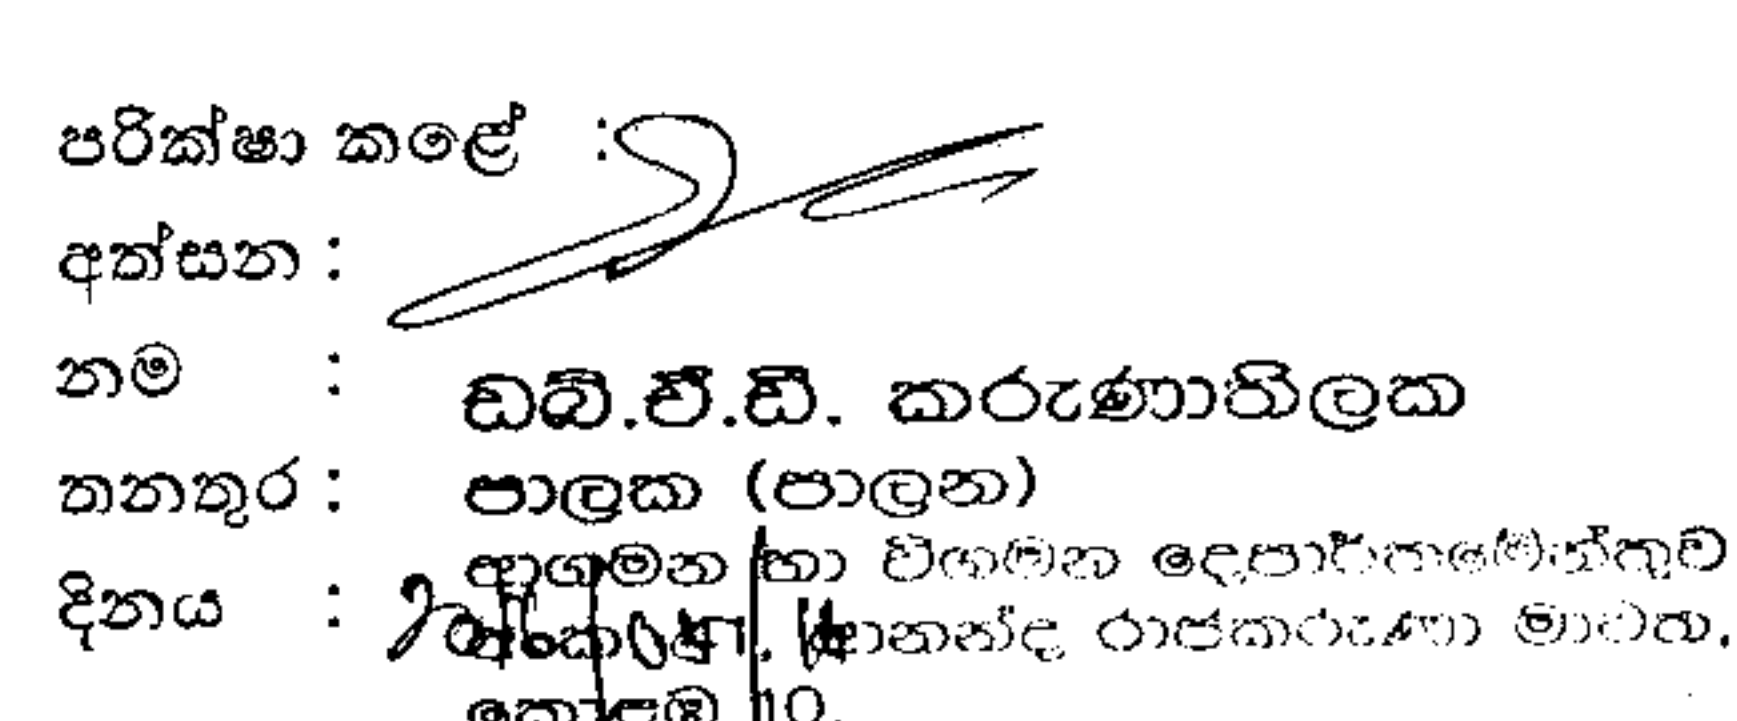 පරික්ෂා කළේ :
අත්සන :
නම : ඩබ්.ඒ.ඩී. කරුණාතිලක
තනතුර : පාලක (පාලන)
ආගමන හා විගමන දෙපාර්තමේන්තුව
දිනය : ආනන්ද රාජකරුණා මාවත,
කොළඹ 10.